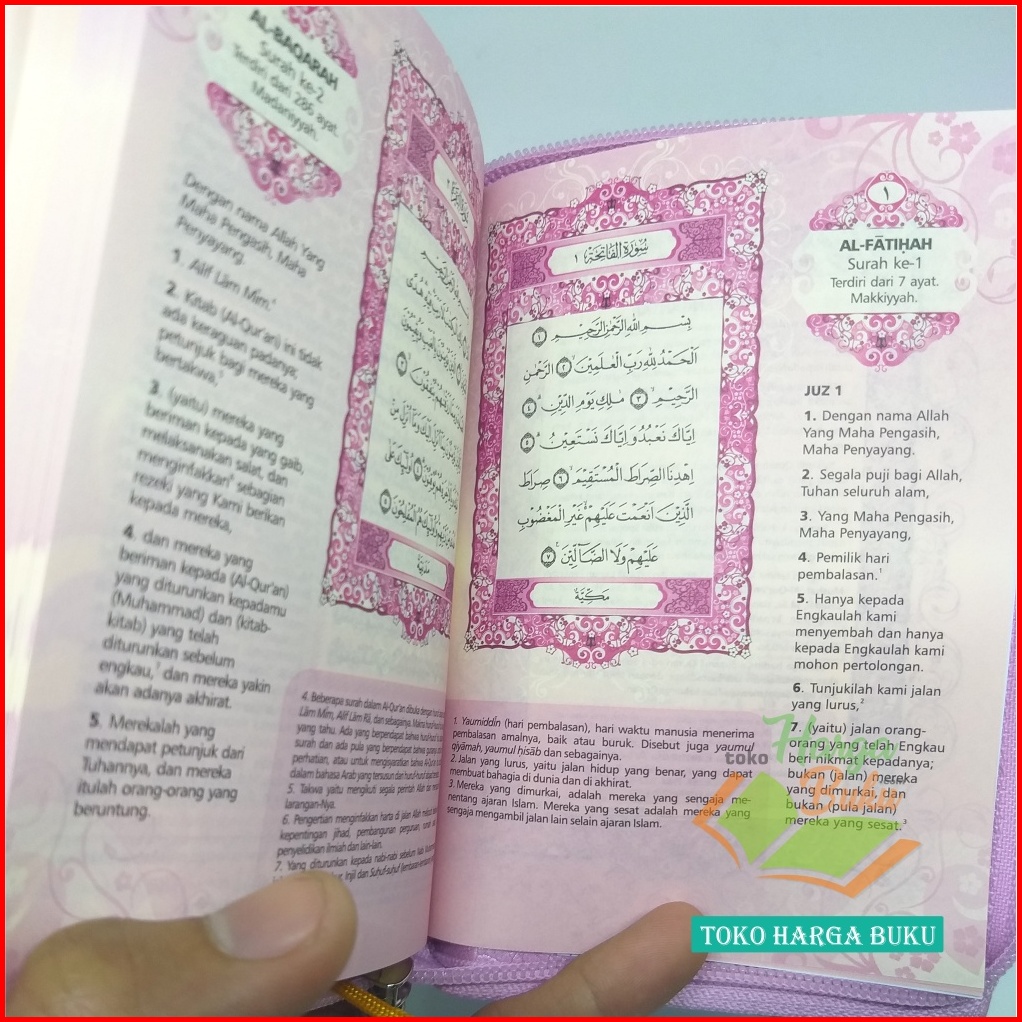 AL-BAQARAH
Surah ke-2
Terdiri dari 286 ayat.
Madaniyyah.
Dengan nama Allah Yang
Maha Pengasih, Maha
Penyayang.
1. Alif Lām Mīm.⁴
2. Kitab (Al-Qur'an) ini tidak
ada keraguan padanya;
petunjuk bagi mereka yang
bertakwa,⁵
3. (yaitu) mereka yang
beriman kepada yang gaib,
melaksanakan salat, dan
menginfakkan⁶ sebagian
rezeki yang Kami berikan
kepada mereka,
4. dan mereka yang
beriman kepada (Al-Qur'an)
yang diturunkan kepadamu
(Muhammad) dan (kitab-
kitab) yang telah
diturunkan sebelum
engkau,⁷ dan mereka yakin
akan adanya akhirat.
5. Merekalah yang
mendapat petunjuk dari
Tuhannya, dan mereka
itulah orang-orang yang
beruntung.
مدنية
4. Beberapa surah dalam Al-Qur'an dibuka dengan
Lām Mīm, Alif Lām Rā, dan sebagainya.
yang tahu. Ada yang berpendapat bahwa
surah dan ada pula yang berpendapat bahwa
perhatian, atau untuk mengisyaratkan bahwa
dalam bahasa Arab yang tersusun dari
5. Takwa yaitu mengikuti segala perintah Allah
larangan-Nya.
6. Pengertian menginfakkan harta di jalan Allah
kepentingan jihad, pembangunan perguruan, rumah
penyelidikan ilmiah dan lain-lain.
7. Yang diturunkan kepada nabi-nabi sebelum
Injil dan Suhuf-suhuf
سُورَةُ الْفَاتِحَةِ ١
بِسْمِ اللّٰهِ الرَّحْمٰنِ الرَّحِيْمِ ۝١
اَلْحَمْدُ لِلّٰهِ رَبِّ الْعٰلَمِيْنَۙ ۝٢ الرَّحْمٰنِ
الرَّحِيْمِۙ ۝٣ مٰلِكِ يَوْمِ الدِّيْنِۗ ۝٤
اِيَّاكَ نَعْبُدُ وَاِيَّاكَ نَسْتَعِيْنُۗ ۝٥
اِهْدِنَا الصِّرَاطَ الْمُسْتَقِيْمَۙ ۝٦ صِرَاطَ
الَّذِيْنَ اَنْعَمْتَ عَلَيْهِمْ ەۙ غَيْرِ الْمَغْضُوْبِ
عَلَيْهِمْ وَلَا الضَّاۤلِّيْنَ ۝٧
مَكِّيَّة
1. Yaumiddīn (hari pembalasan), hari waktu manusia menerima
pembalasan amalnya, baik atau buruk. Disebut juga yaumul
qiyāmah, yaumul hisāb dan sebagainya.
2. Jalan yang lurus, yaitu jalan hidup yang benar, yang dapat
membuat bahagia di dunia dan di akhirat.
3. Mereka yang dimurkai, adalah mereka yang sengaja me-
nentang ajaran Islam. Mereka yang sesat adalah mereka yang
sengaja mengambil jalan lain selain ajaran Islam.
١
AL-FĀTIḤAH
Surah ke-1
Terdiri dari 7 ayat.
Makkiyyah.
JUZ 1
1. Dengan nama Allah
Yang Maha Pengasih,
Maha Penyayang.
2. Segala puji bagi Allah,
Tuhan seluruh alam,
3. Yang Maha Pengasih,
Maha Penyayang,
4. Pemilik hari
pembalasan.¹
5. Hanya kepada
Engkaulah kami
menyembah dan hanya
kepada Engkaulah kami
mohon pertolongan.
6. Tunjukilah kami jalan
yang lurus,²
7. (yaitu) jalan orang-
orang yang telah Engkau
beri nikmat kepadanya;
bukan (jalan) mereka
yang dimurkai, dan
bukan (pula jalan)
mereka yang sesat.³
toko
Harga
Buku
TOKO HARGA BUKU